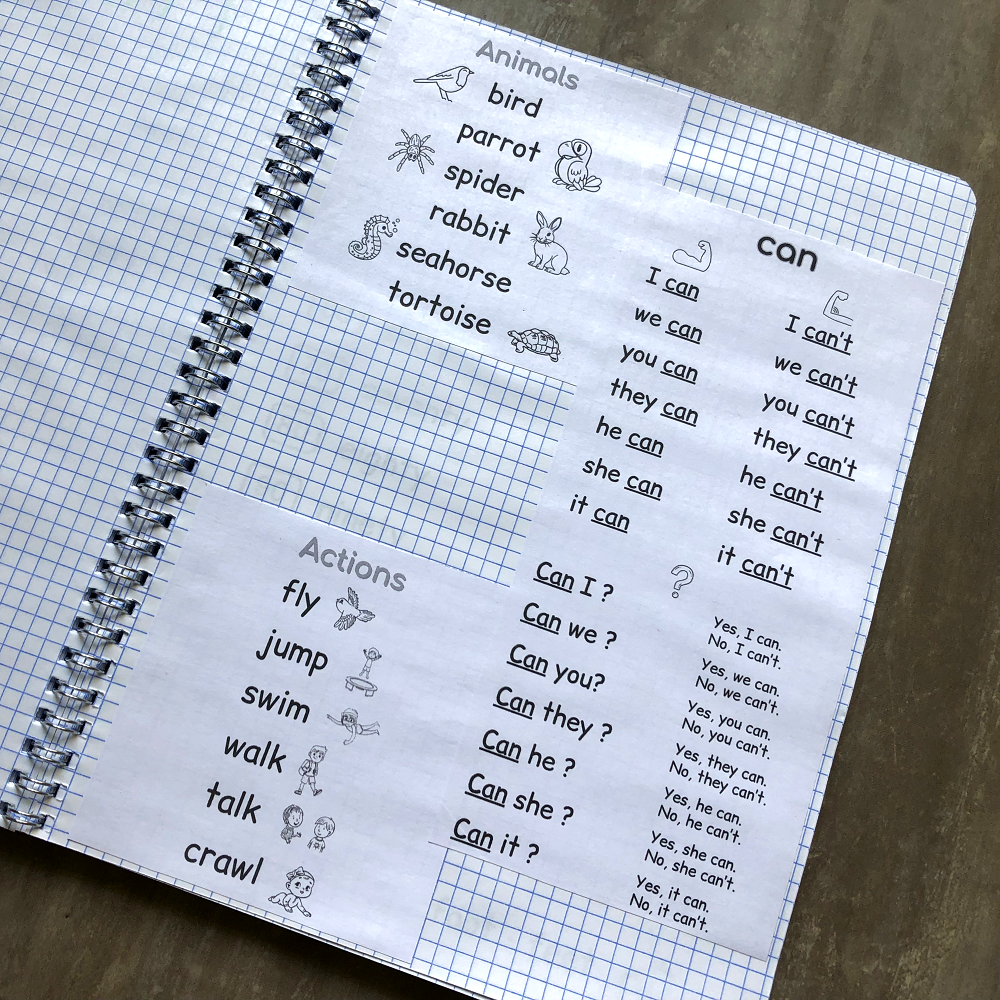 Animals
bird
parrot
spider
rabbit
seahorse
tortoise
Actions
fly
jump
swim
walk
talk
crawl
can
I can
we can
you can
they can
he can
she can
it can
I can't
we can't
you can't
they can't
he can't
she can't
it can't
?
Can I ?
Can we ?
Can you?
Can they ?
Can he ?
Can she ?
Can it ?
Yes, I can.
No, I can't.
Yes, we can.
No, we can't.
Yes, you can.
No, you can't.
Yes, they can.
No, they can't.
Yes, he can.
No, he can't.
Yes, she can.
No, she can't.
Yes, it can.
No, it can't.